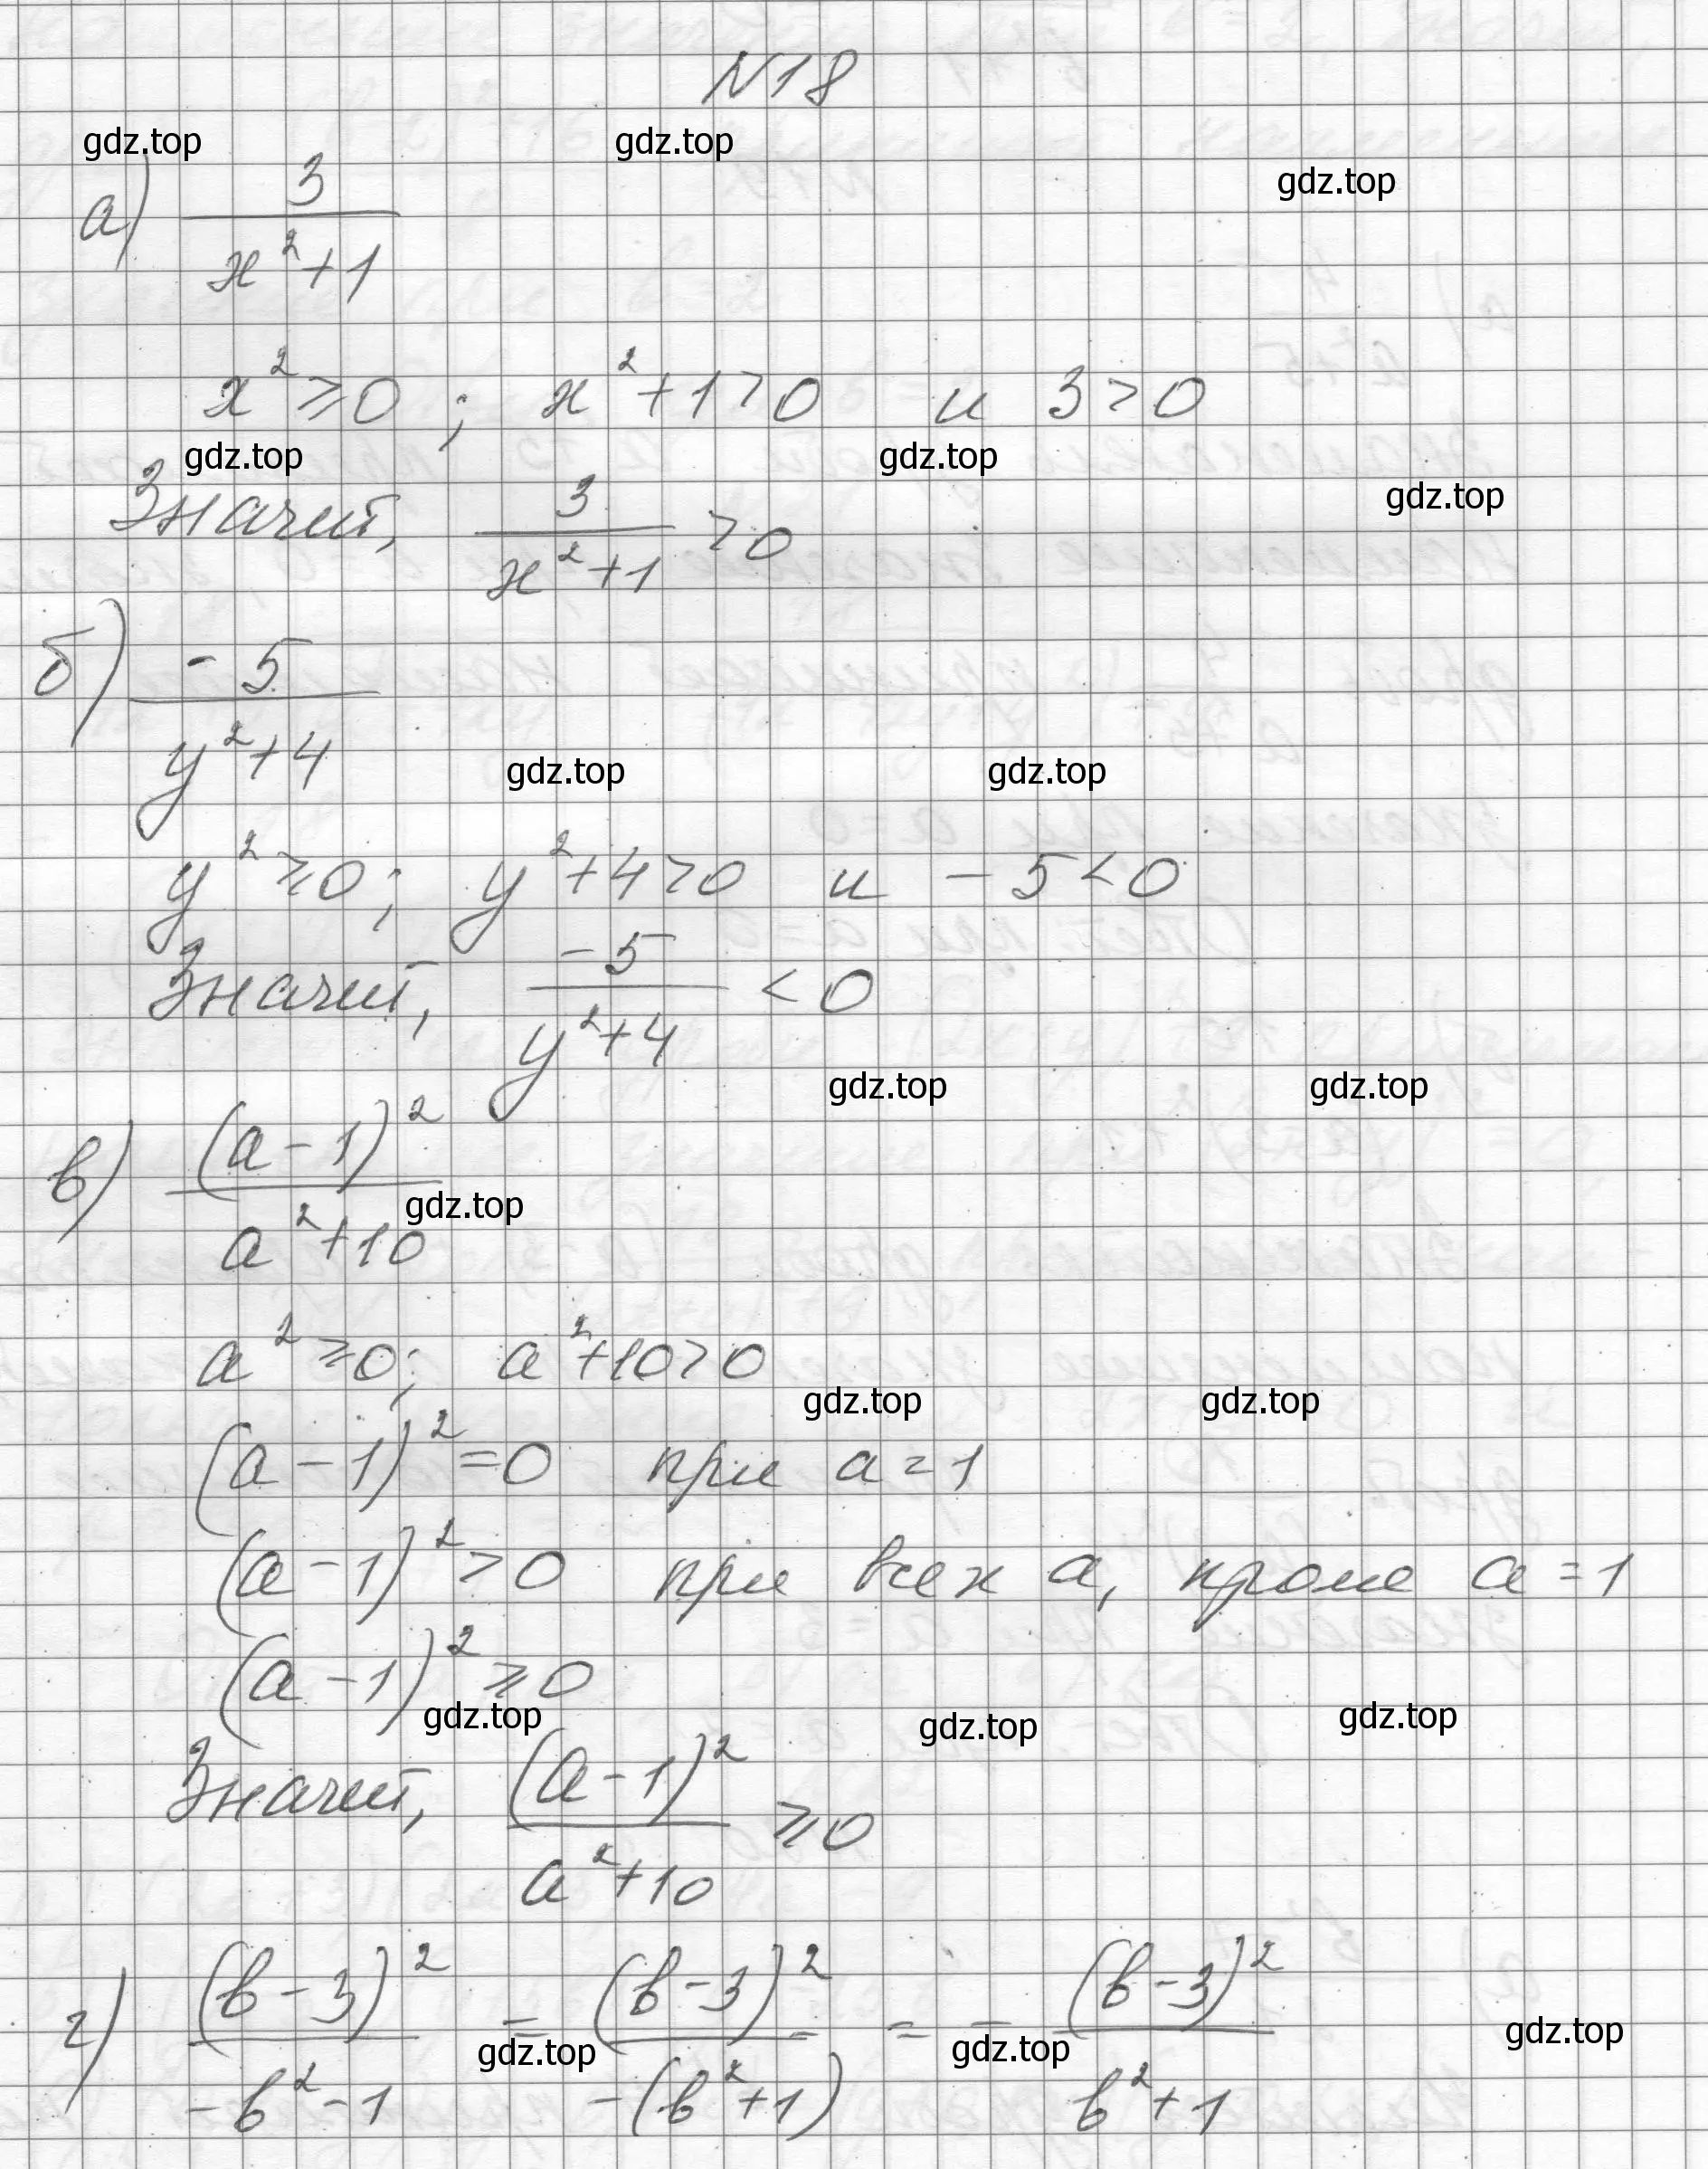 N18
gdz.top gdz.top gdz.top
а) 3/(x²+1)
x²⩾0 ; x²+1>0 и 3>0
gdz.top gdz.top gdz.top
Значит, 3/(x²+1) >0
б) -5/(y²+4)
gdz.top gdz.top
y²⩾0; y²+4>0 и -5<0
Значит, -5/(y²+4) <0
gdz.top gdz.top
в) (a-1)²/(a²+10)
gdz.top
a²⩾0; a²+10>0
gdz.top gdz.top
(a-1)²=0 при a=1
(a-1)²>0 при всех a, кроме a=1
(a-1)²⩾0
gdz.top gdz.top gdz.top
Значит, (a-1)²/(a²+10) ⩾0
г) (b-3)²/(-b²-1) = (b-3)²/(-(b²+1)) = - (b-3)²/(b²+1)
gdz.top gdz.top gdz.top